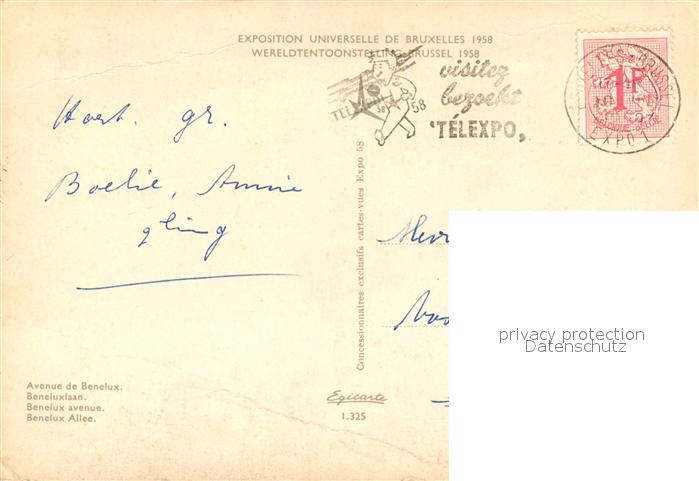 EXPOSITION UNIVERSELLE DE BRUXELLES 1958
WERELDTENTOONSTELLING BRUSSEL 1958
visitez
bezoekt
"TÉLEXPO"
58
1F
EXPO 1
Hart. gr.
Boelie, Annie
Concessionnaires exclusifs cartes-vues Expo 58
privacy protection
Datenschutz
Avenue de Benelux.
Beneluxlaan.
Benelux avenue.
Benelux Allee.
Egicarte
1.325